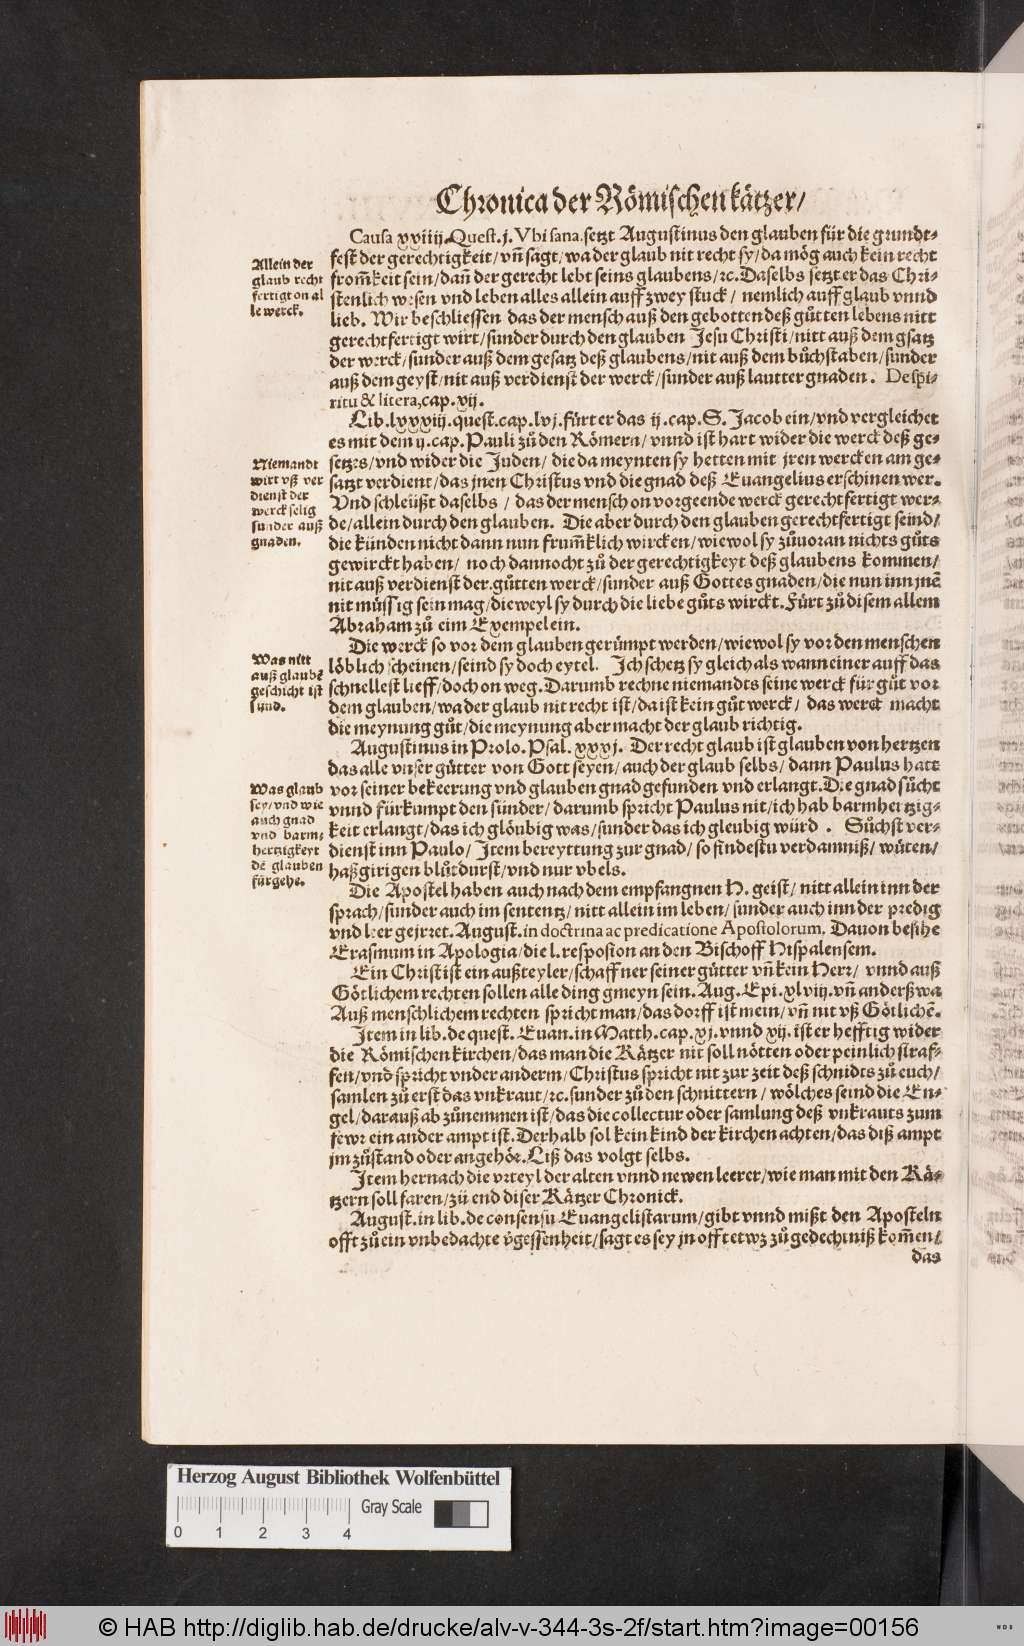 Chronica der Römischen kätzer/
Causa xxiiij. Quest. j. Vbi sana. setzt Augustinus den glauben für die grundt-
fest der gerechtigkeit/ vñ sagt/ wa der glaub nit recht sy/ da mög auch kein recht
from̃keit sein/ dañ der gerecht lebt seins glaubens/ ꝛc. Daselbs setzt er das Chri-
stenlich wesen vnd leben alles allein auff zwey stuck/ nemlich auff glaub vnnd
lieb. Wir beschliessen das der mensch auß den gebotten deß gůtten lebens nitt
gerechtfertigt wirt/ sunder durch den glauben Jesu Christi/ nitt auß dem gsatz
der werck/ sunder auß dem gesatz deß glaubens/ nit auß dem bůchstaben/ sunder
auß dem geyst/ nit auß verdienst der werck/ sunder auß lautter gnaden. De spi-
ritu & litera, cap. xij.
Allein der
glaub recht
fertigt on al
le werck.
Lib. lxxxiij. quest. cap. lvj. fürt er das ij. cap. S. Jacob ein/ vnd vergleichet
es mit dem ij. cap. Pauli zů den Römern/ vnnd ist hart wider die werck deß ge-
setzes/ vnd wider die Juden/ die da meynten sy hetten mit jren wercken am ge-
satzt verdient/ das jnen Christus vnd die gnad deß Euangelius erschinen wer.
Vnd schleüßt daselbs/ das der mensch on vorgeende werck gerechtfertigt wer-
de/ allein durch den glauben. Die aber durch den glauben gerechtfertigt seind/
die künden nicht dann nun frum̃klich wircken/ wiewol sy zůuoran nichts gůts
gewirckt haben/ noch dannocht zů der gerechtigkeyt deß glaubens kommen/
nit auß verdienst der gůtten werck/ sunder auß Gottes gnaden/ die nun inn jnẽ
nit müssig sein mag/ dieweyl sy durch die liebe gůts wirckt. Fürt zů disem allem
Abraham zů eim Exempel ein.
Niemandt
wirt vß ver
dienst der
werck selig
sunder auß
gnaden.
Die werck so vor dem glauben gerümpt werden/ wiewol sy vor den menschen
löblich scheinen/ seind sy doch eytel. Ich schetz sy gleich als wann einer auff das
schnellest lieff/ doch on weg. Darumb rechne niemandts seine werck für gůt vor
dem glauben/ wa der glaub nit recht ist/ da ist kein gůt werck/ das werck macht
die meynung gůt/ die meynung aber macht der glaub richtig.
Was nitt
auß glaubẽ
geschicht ist
sünd.
Augustinus in Prolo. Psal. xxxj. Der recht glaub ist glauben von hertzen
das alle vnser gůtter von Gott seyen/ auch der glaub selbs/ dann Paulus hatt
vor seiner bekeerung vnd glauben gnad gefunden vnd erlangt. Die gnad sůcht
vnnd fürkumpt den sünder/ darumb spricht Paulus nit/ ich hab barmhertzig-
keit erlangt/ das ich glöubig was/ sunder das ich gleubig würd. Sůchst ver-
dienst inn Paulo/ Item bereyttung zur gnad/ so findestu verdamniß/ wůten/
haßgirigen blůtdurst/ vnd nur vbels.
Was glaub
sey/ vnd wie
auch gnad
vnd barm-
hertzigkeyt
dẽ glauben
fürgehe.
Die Apostel haben auch nach dem empfangnen H. geist/ nitt allein inn der
sprach/ sunder auch im sententz/ nitt allein im leben/ sunder auch inn der predig
vnd leer gejrret. August. in doctrina ac predicatione Apostolorum. Dauon besihe
Erasmum in Apologia/ die l. resposion an den Bischoff Hispalensem.
Ein Christ ist ein außteyler/ schaffner seiner gütter vñ kein Herr/ vnnd auß
Götlichem rechten sollen alle ding gmeyn sein. Aug. Epi. xlviij. vñ anderßwa
Auß menschlichem rechten spricht man/ das dorff ist mein/ vñ nit vß Götlichẽ.
Item in lib. de quest. Euan. in Matth. cap. xj. vnnd xij. ist er hefftig wider
die Römischen kirchen/ das man die Kätzer nit soll nötten oder peinlich straf-
fen/ vnd spricht vnder anderm/ Christus spricht nit zur zeit deß schnidts zů euch/
samlen zů erst das vnkraut/ ꝛc. sunder zů den schnittern/ wölches seind die En-
gel/ darauß ab zůnemmen ist/ das die collectur oder samlung deß vnkrauts zum
fewr ein ander ampt ist. Derhalb sol kein kind der kirchen achten/ das diß ampt
jm zůstand oder angehör. Liß das volgt selbs.
Item hernach die vrteyl der alten vnnd newen leerer/ wie man mit den Kä-
tzern soll faren/ zů end diser Kätzer Chronick.
August. in lib. de consensu Euangelistarum/ gibt vnnd mißt den Aposteln
offt zů ein vnbedachte v̈gessenheit/ sagt es sey jn offt etwz zů gedechtniß kom̃en/
das
Herzog August Bibliothek Wolfenbüttel
Gray Scale
0 1 2 3 4
© HAB http://diglib.hab.de/drucke/alv-v-344-3s-2f/start.htm?image=00156